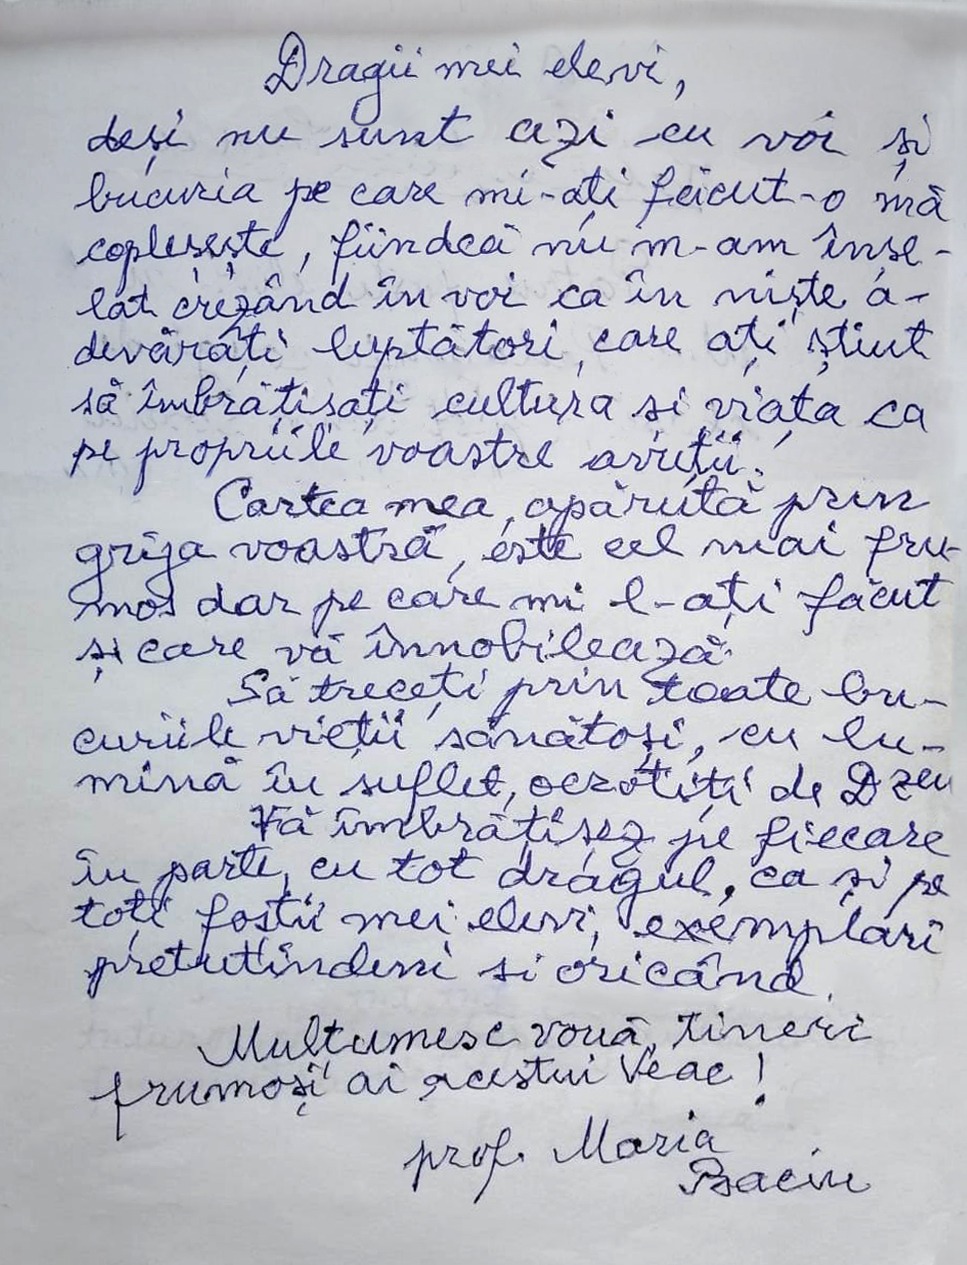 Dragii mei elevi,
deși nu sunt azi cu voi și
bucuria pe care mi-ați făcut-o mă
copleșește, fiindcă nu m-am înșe-
lat crezând în voi ca în niște a-
devărați luptători, care ați știut
să îmbrățișați cultura și viața ca
pe propriile voastre avuții.
Cartea mea, apărută prin
grija voastră, este cel mai fru-
mos dar pe care mi l-ați făcut
și care vă înnobilează.
Să treceți prin toate bu-
curiile vieții sănătoși, cu lu-
mină în suflet, ocrotiți de Dzeu
Vă îmbrățișez pe fiecare
în parte, cu tot dragul, ca și pe
toți foștii mei elevi, exemplari
pretutindeni și oricând.
Mulțumesc vouă, tineri
frumoși ai acestui Veac!
prof. Maria
Baciu